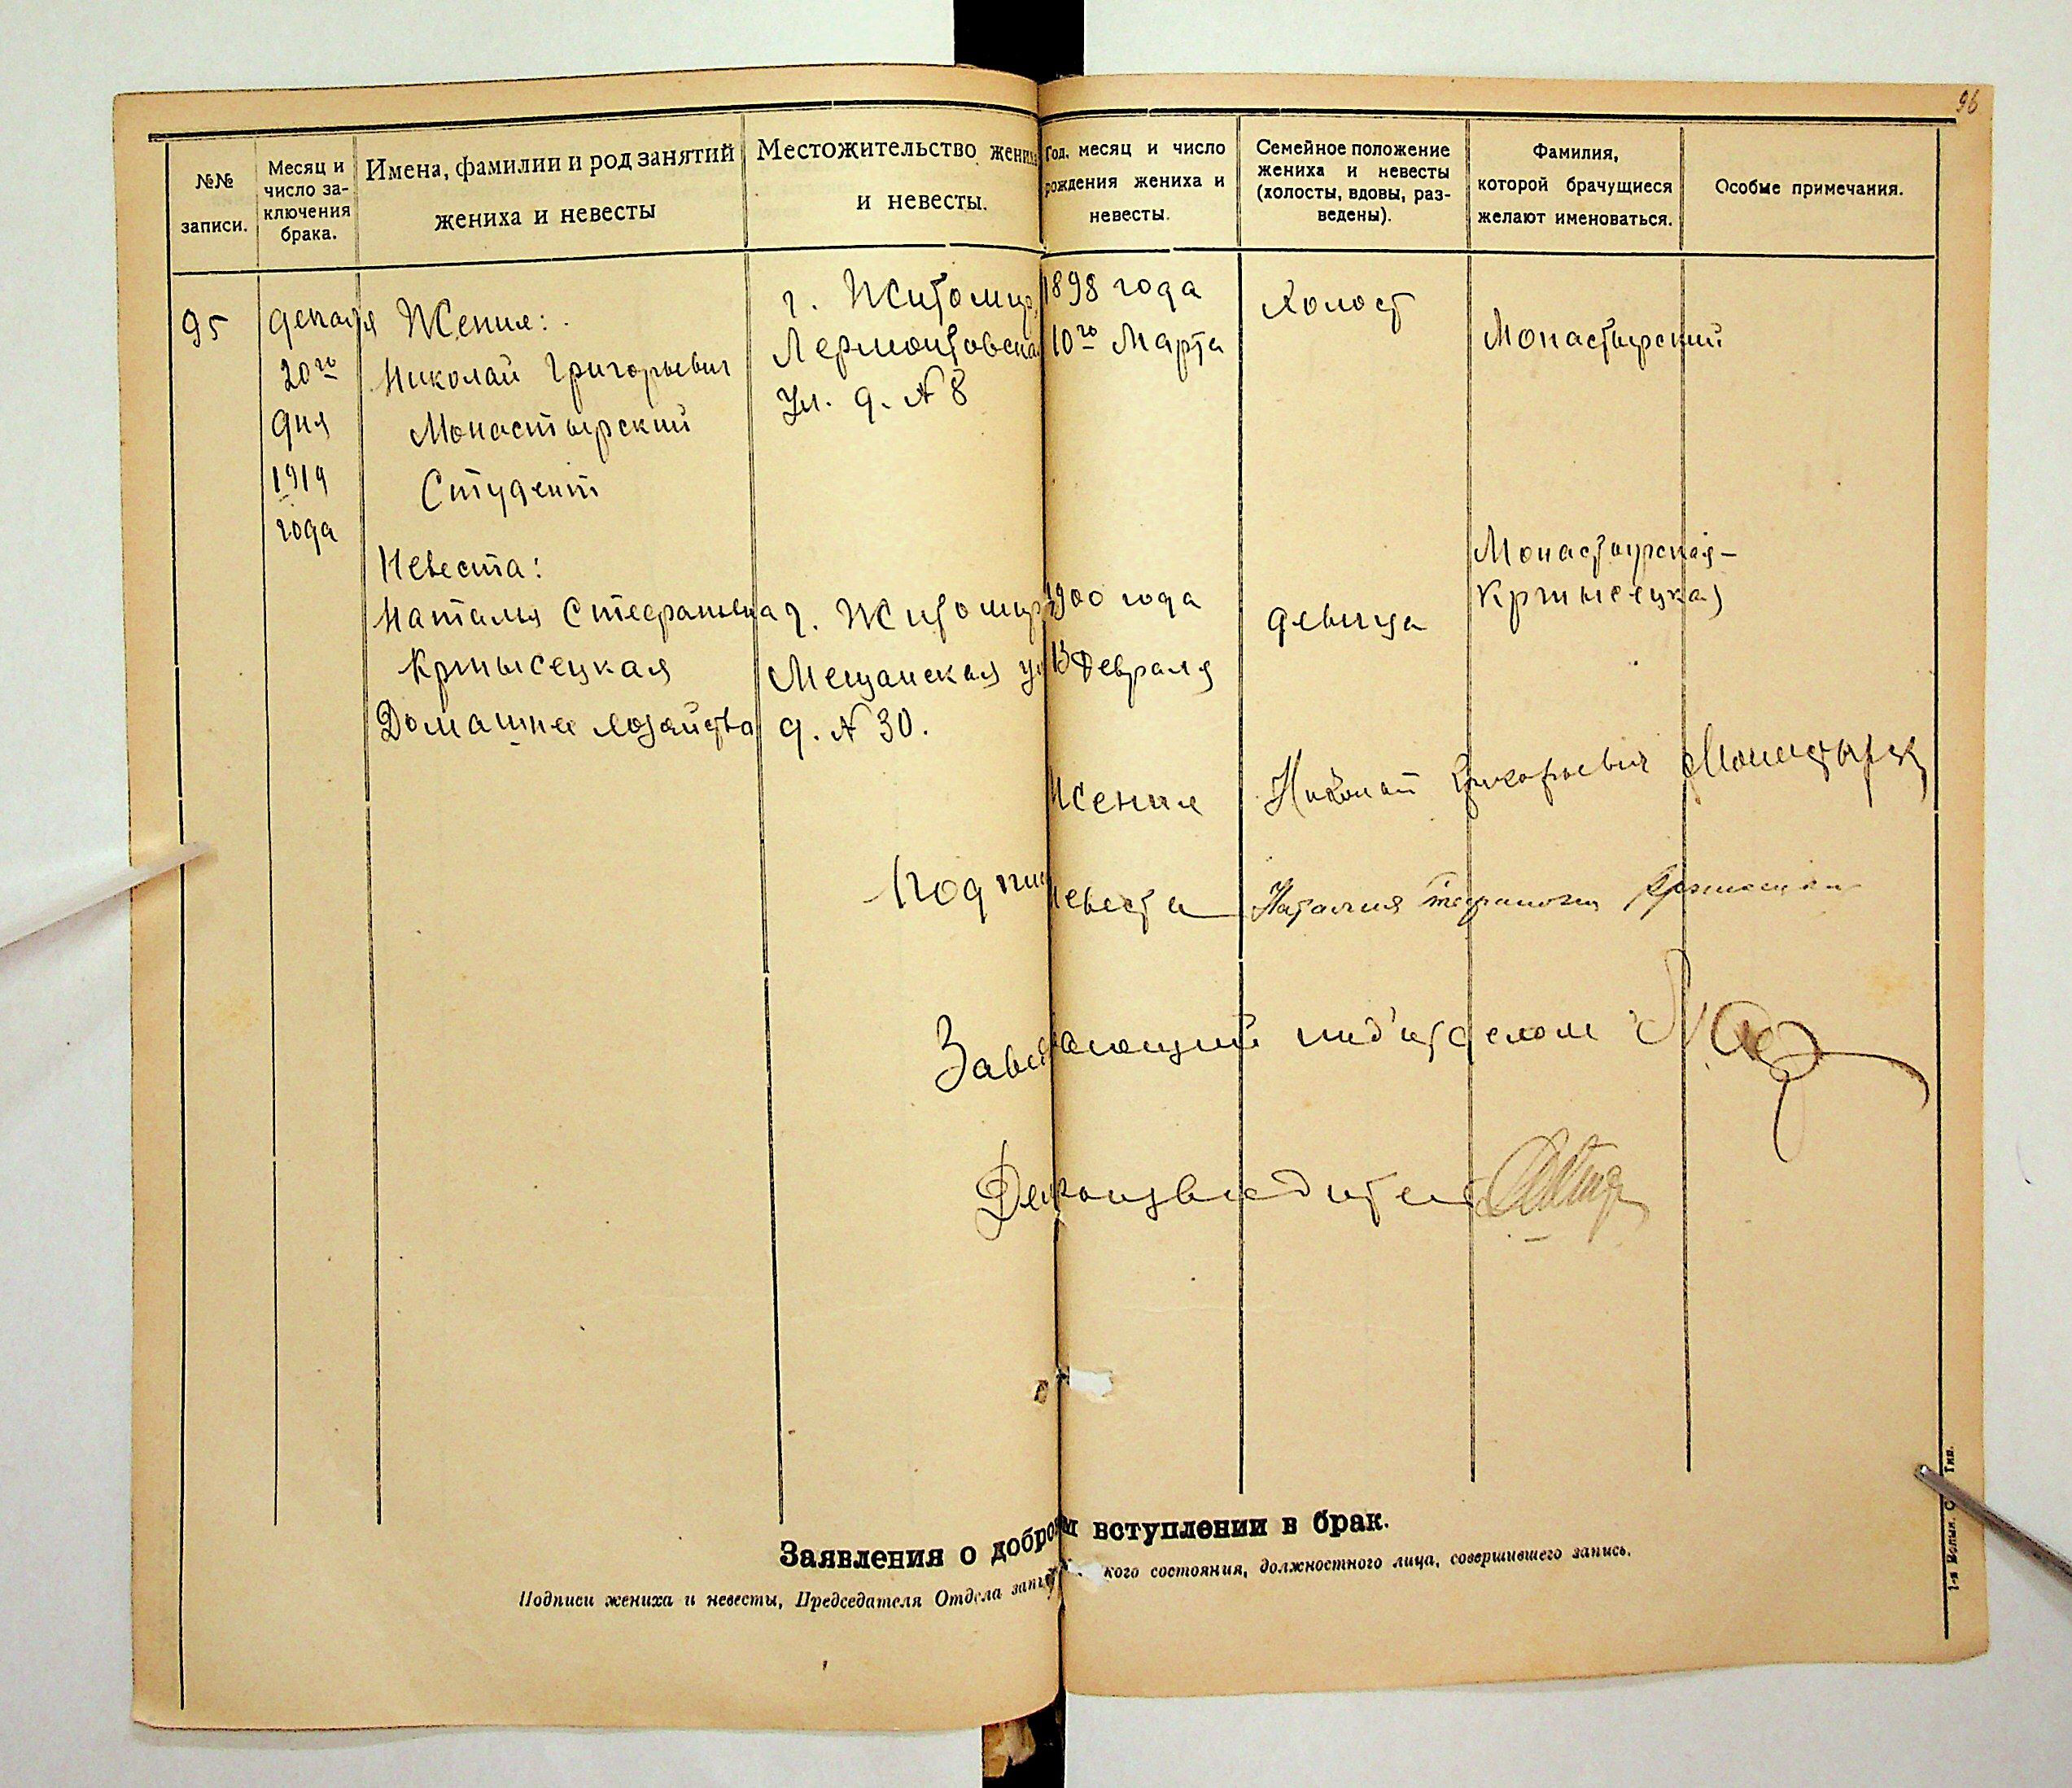 96
№№ записи.
Месяц и число за-
ключения брака.
Имена, фамилии и род занятий
жениха и невесты
Местожительство жениха
и невесты.
Год, месяц и число
рождения жениха и
невесты.
Семейное положение
жениха и невесты
(холосты, вдовы, раз-
ведены).
Фамилия,
которой брачущиеся
желают именоваться.
Особые примечания.
95
декабря
20го
дня
1919
года
Жених:
Николай Григорьевич
Монастырский
Студент
г. Житомир,
Лермонтовская
ул. д. № 8
1898 года
10го Марта
Холост
Монастырский
Невеста:
Наталия Стефановна
Кртысецкая
Домашнее хозяйство
г. Житомир
Мещанская ул
д. № 30.
1900 года
13 Февраля
девица
Монастырская-
Кртысецкая
Жених Николай Григорьевич
Подписи
Невеста Наталия
Заведывающий подотделом
Делопроизводитель
Заявления о добром вступлении в брак.
Подписи жениха и невесты, Председателя Отдела кого состояния, должностного лица, совершившего запись.
1-я Волын. Тип.